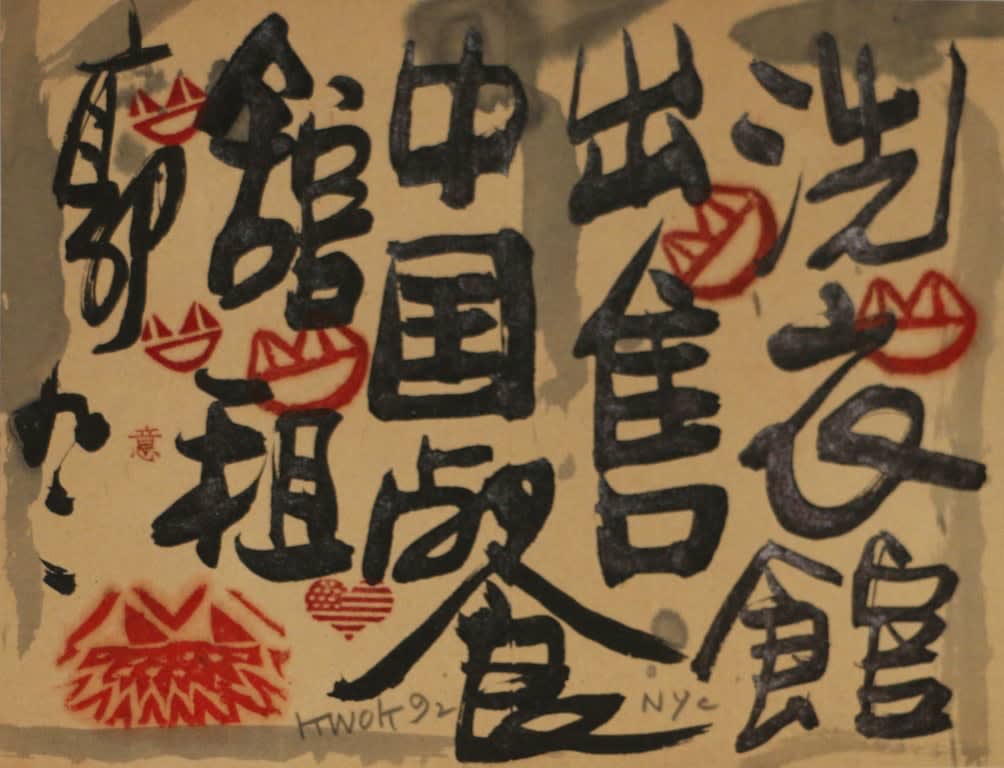 洗衣館
出售
中国餐
館租
郭九二
意
KWOK 92 NYC